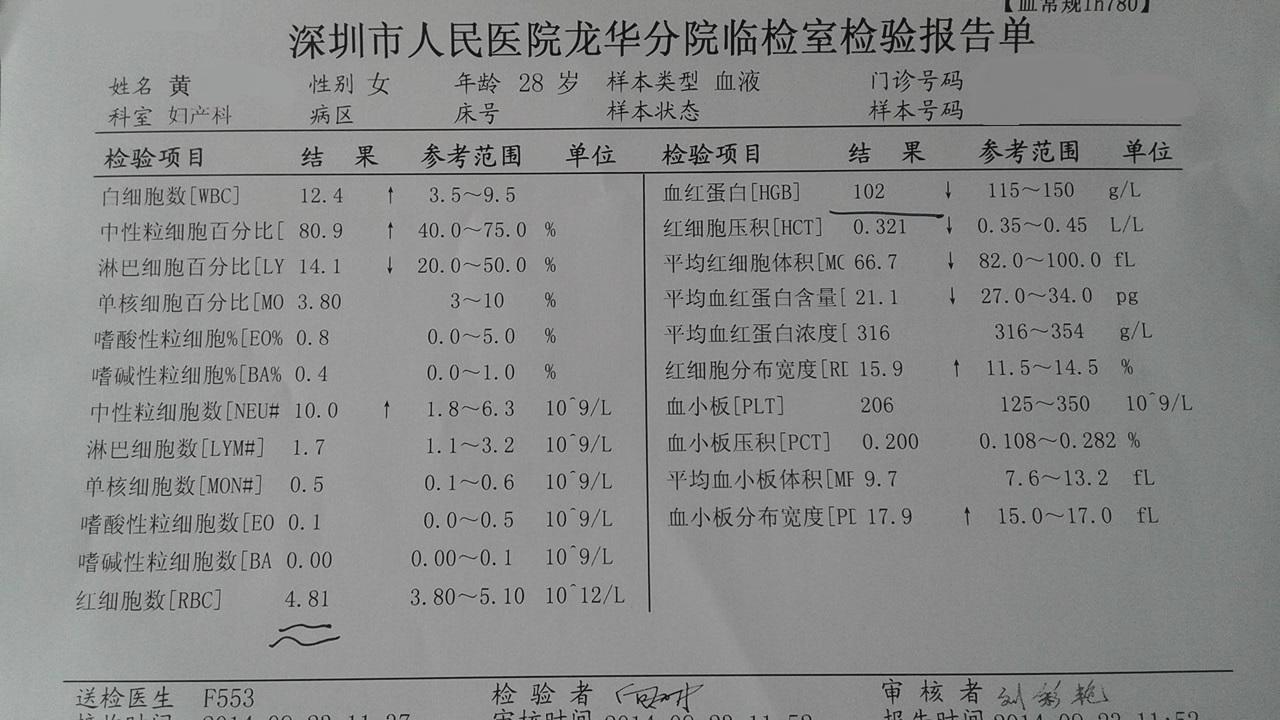 【血常规1h780】
深圳市人民医院龙华分院临检室检验报告单
姓名 黄 性别 女 年龄 28 岁 样本类型 血液 门诊号码
科室 妇产科 病区 床号 样本状态 样本号码
检验项目 结 果 参考范围 单位 检验项目 结 果 参考范围 单位
白细胞数[WBC] 12.4 ↑ 3.5~9.5 血红蛋白[HGB] 102 ↓ 115~150 g/L
中性粒细胞百分比[ 80.9 ↑ 40.0~75.0 % 红细胞压积[HCT] 0.321 ↓ 0.35~0.45 L/L
淋巴细胞百分比[LY 14.1 ↓ 20.0~50.0 % 平均红细胞体积[MC 66.7 ↓ 82.0~100.0 fL
单核细胞百分比[MO 3.80 3~10 % 平均血红蛋白含量[ 21.1 ↓ 27.0~34.0 pg
嗜酸性粒细胞%[EO% 0.8 0.0~5.0 % 平均血红蛋白浓度[ 316 316~354 g/L
嗜碱性粒细胞%[BA% 0.4 0.0~1.0 % 红细胞分布宽度[RD 15.9 ↑ 11.5~14.5 %
中性粒细胞数[NEU# 10.0 ↑ 1.8~6.3 10^9/L 血小板[PLT] 206 125~350 10^9/L
淋巴细胞数[LYM#] 1.7 1.1~3.2 10^9/L 血小板压积[PCT] 0.200 0.108~0.282 %
单核细胞数[MON#] 0.5 0.1~0.6 10^9/L 平均血小板体积[MP 9.7 7.6~13.2 fL
嗜酸性粒细胞数[EO 0.1 0.0~0.5 10^9/L 血小板分布宽度[PD 17.9 ↑ 15.0~17.0 fL
嗜碱性粒细胞数[BA 0.00 0.00~0.1 10^9/L
红细胞数[RBC] 4.81 3.80~5.10 10^12/L
送检医生 F553 检 验 者 审 核 者 刘彩艳
接收时间 2014-09-23 11:37 审核时间 2014-09-23 11:52 报告时间 2014-09-23 11:52